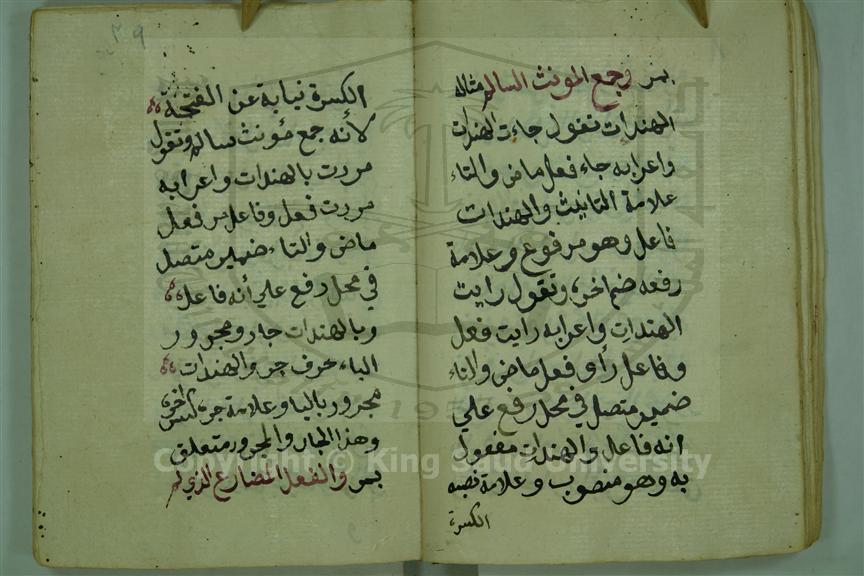 بمر وجمع المونث السالم مثاله
الهندات تقول جاءت الهندات
واعرابه جاء فعل ماض والتاء
علامة التانيث والهندات
فاعل وهو مرفوع وعلامة
رفعه ضم اخره وتقول رايت
الهندات واعرابه رايت فعل
وفاعل رأى فعل ماض والتاء
ضمير متصل في محل رفع علي
انه فاعل والهندات مفعول
به وهو منصوب وعلامة نصبه
الكسرة
الكسرة نيابة عن الفتحة
لأنه جمع مؤنث سالم وتقول
مررت بالهندات واعرابه
مررت فعل وفاعل مر فعل
ماض والتاء ضمير متصل
في محل رفع علي أنه فاعل
وبالهندات جار ومجرور
الباء حرف جر والهندات
مجرور باليا وعلامة جره كسر اخره
وهذا الجار والمجرور متعلق
بمر والفعل المضارع الذي لم
Copyright © King Saud University
1957